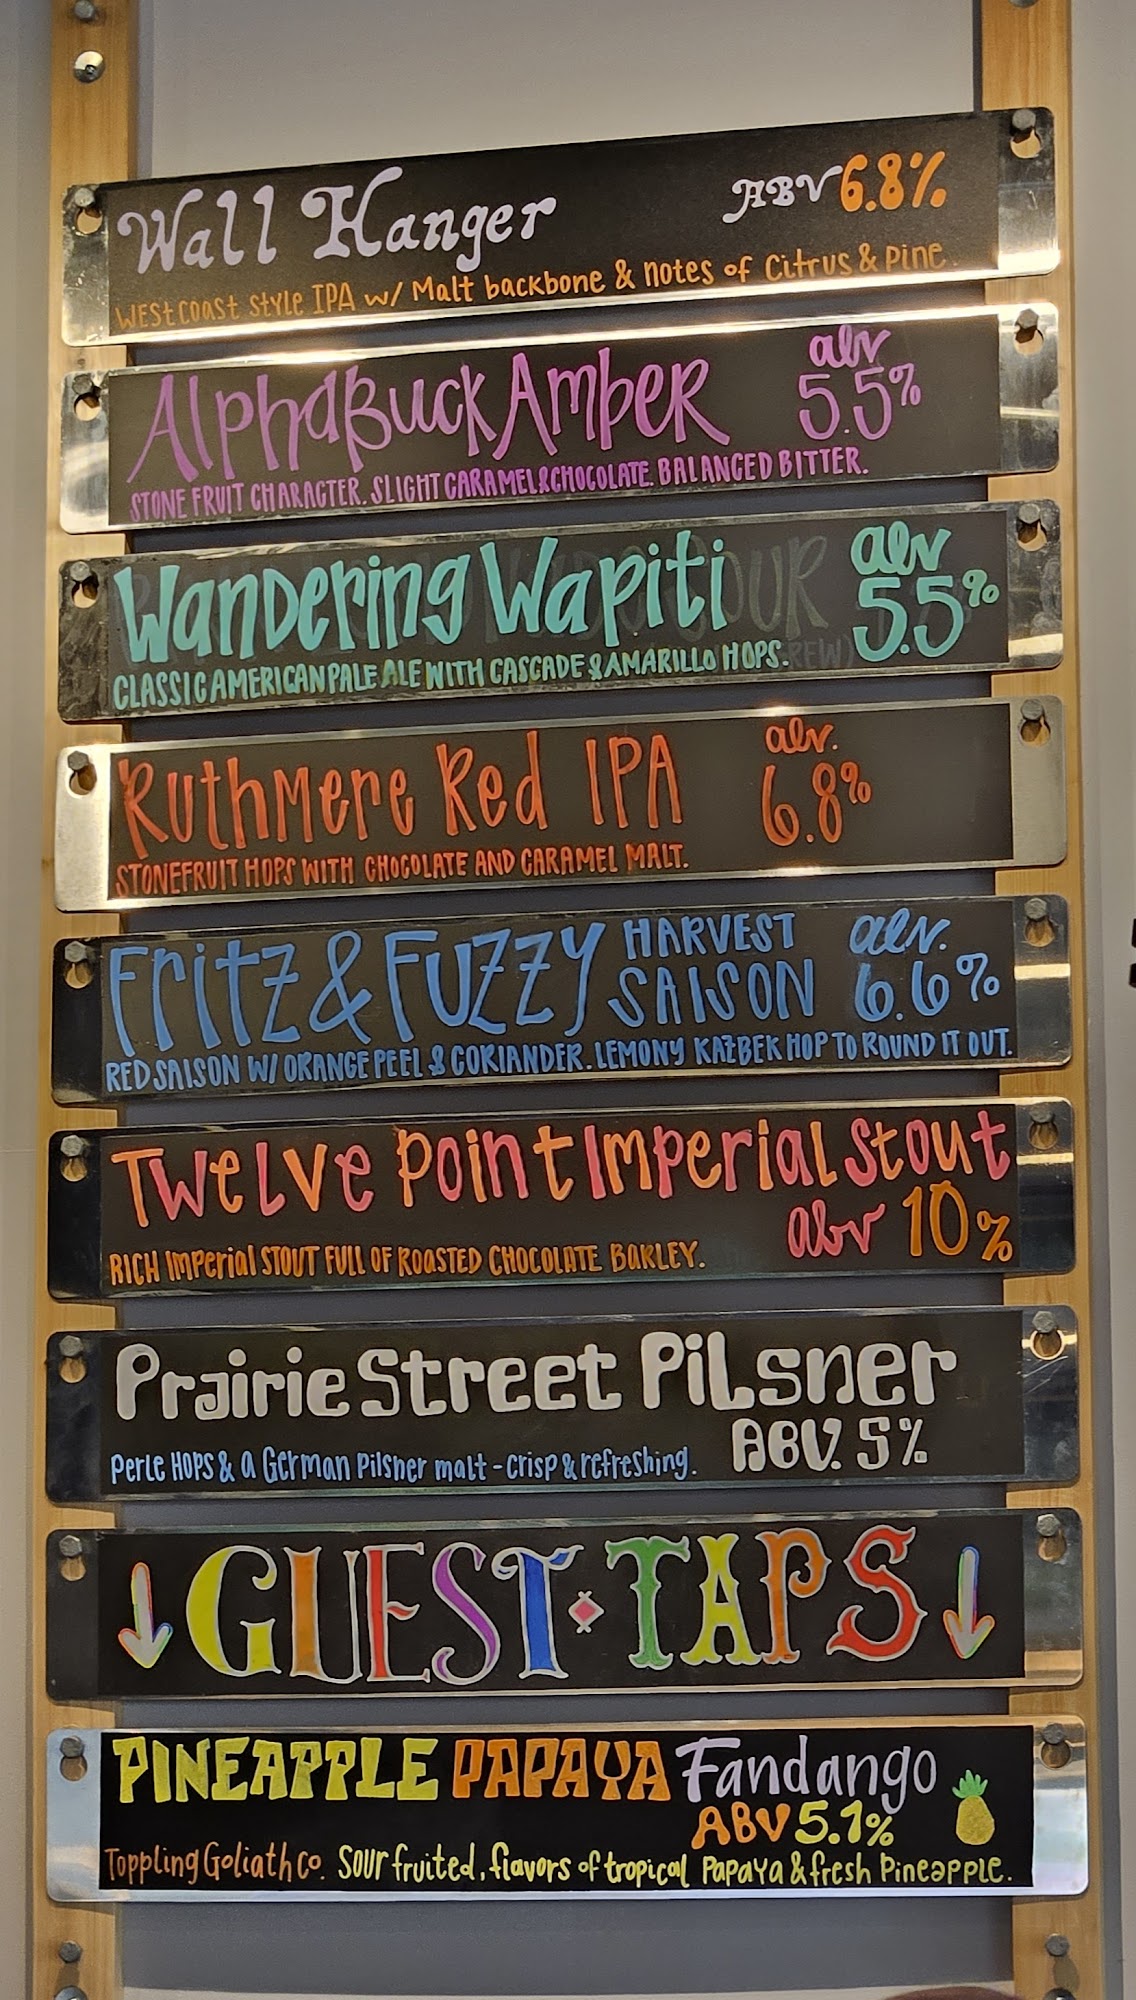 Wall Hanger ABV 6.8%
WESTCOAST STYLE IPA w/ Malt backbone & notes of Citrus & Pine
AlphaBuck Amber abv 5.5%
STONE FRUIT CHARACTER. SLIGHT CARAMEL & CHOCOLATE. BALANCED BITTER.
Wandering Wapiti abv 5.5%
CLASSIC AMERICAN PALE ALE WITH CASCADE & AMARILLO HOPS.
Ruthmere Red IPA abv. 6.8%
STONEFRUIT HOPS WITH CHOCOLATE AND CARAMEL MALT.
Fritz & Fuzzy HARVEST SAISON abv. 6.6%
RED SAISON W/ ORANGE PEEL & CORIANDER. LEMONY KAZBEK HOP TO ROUND IT OUT.
Twelve Point Imperial Stout
abv 10%
RICH Imperial STOUT FULL OF ROASTED CHOCOLATE BARLEY.
Prairie Street Pilsner
ABV. 5%
Perle HOPS & a German Pilsner malt - crisp & refreshing.
GUEST TAPS
PINEAPPLE PAPAYA Fandango
ABV 5.1%
Toppling Goliath Co. Sour fruited, flavors of tropical Papaya & fresh Pineapple.